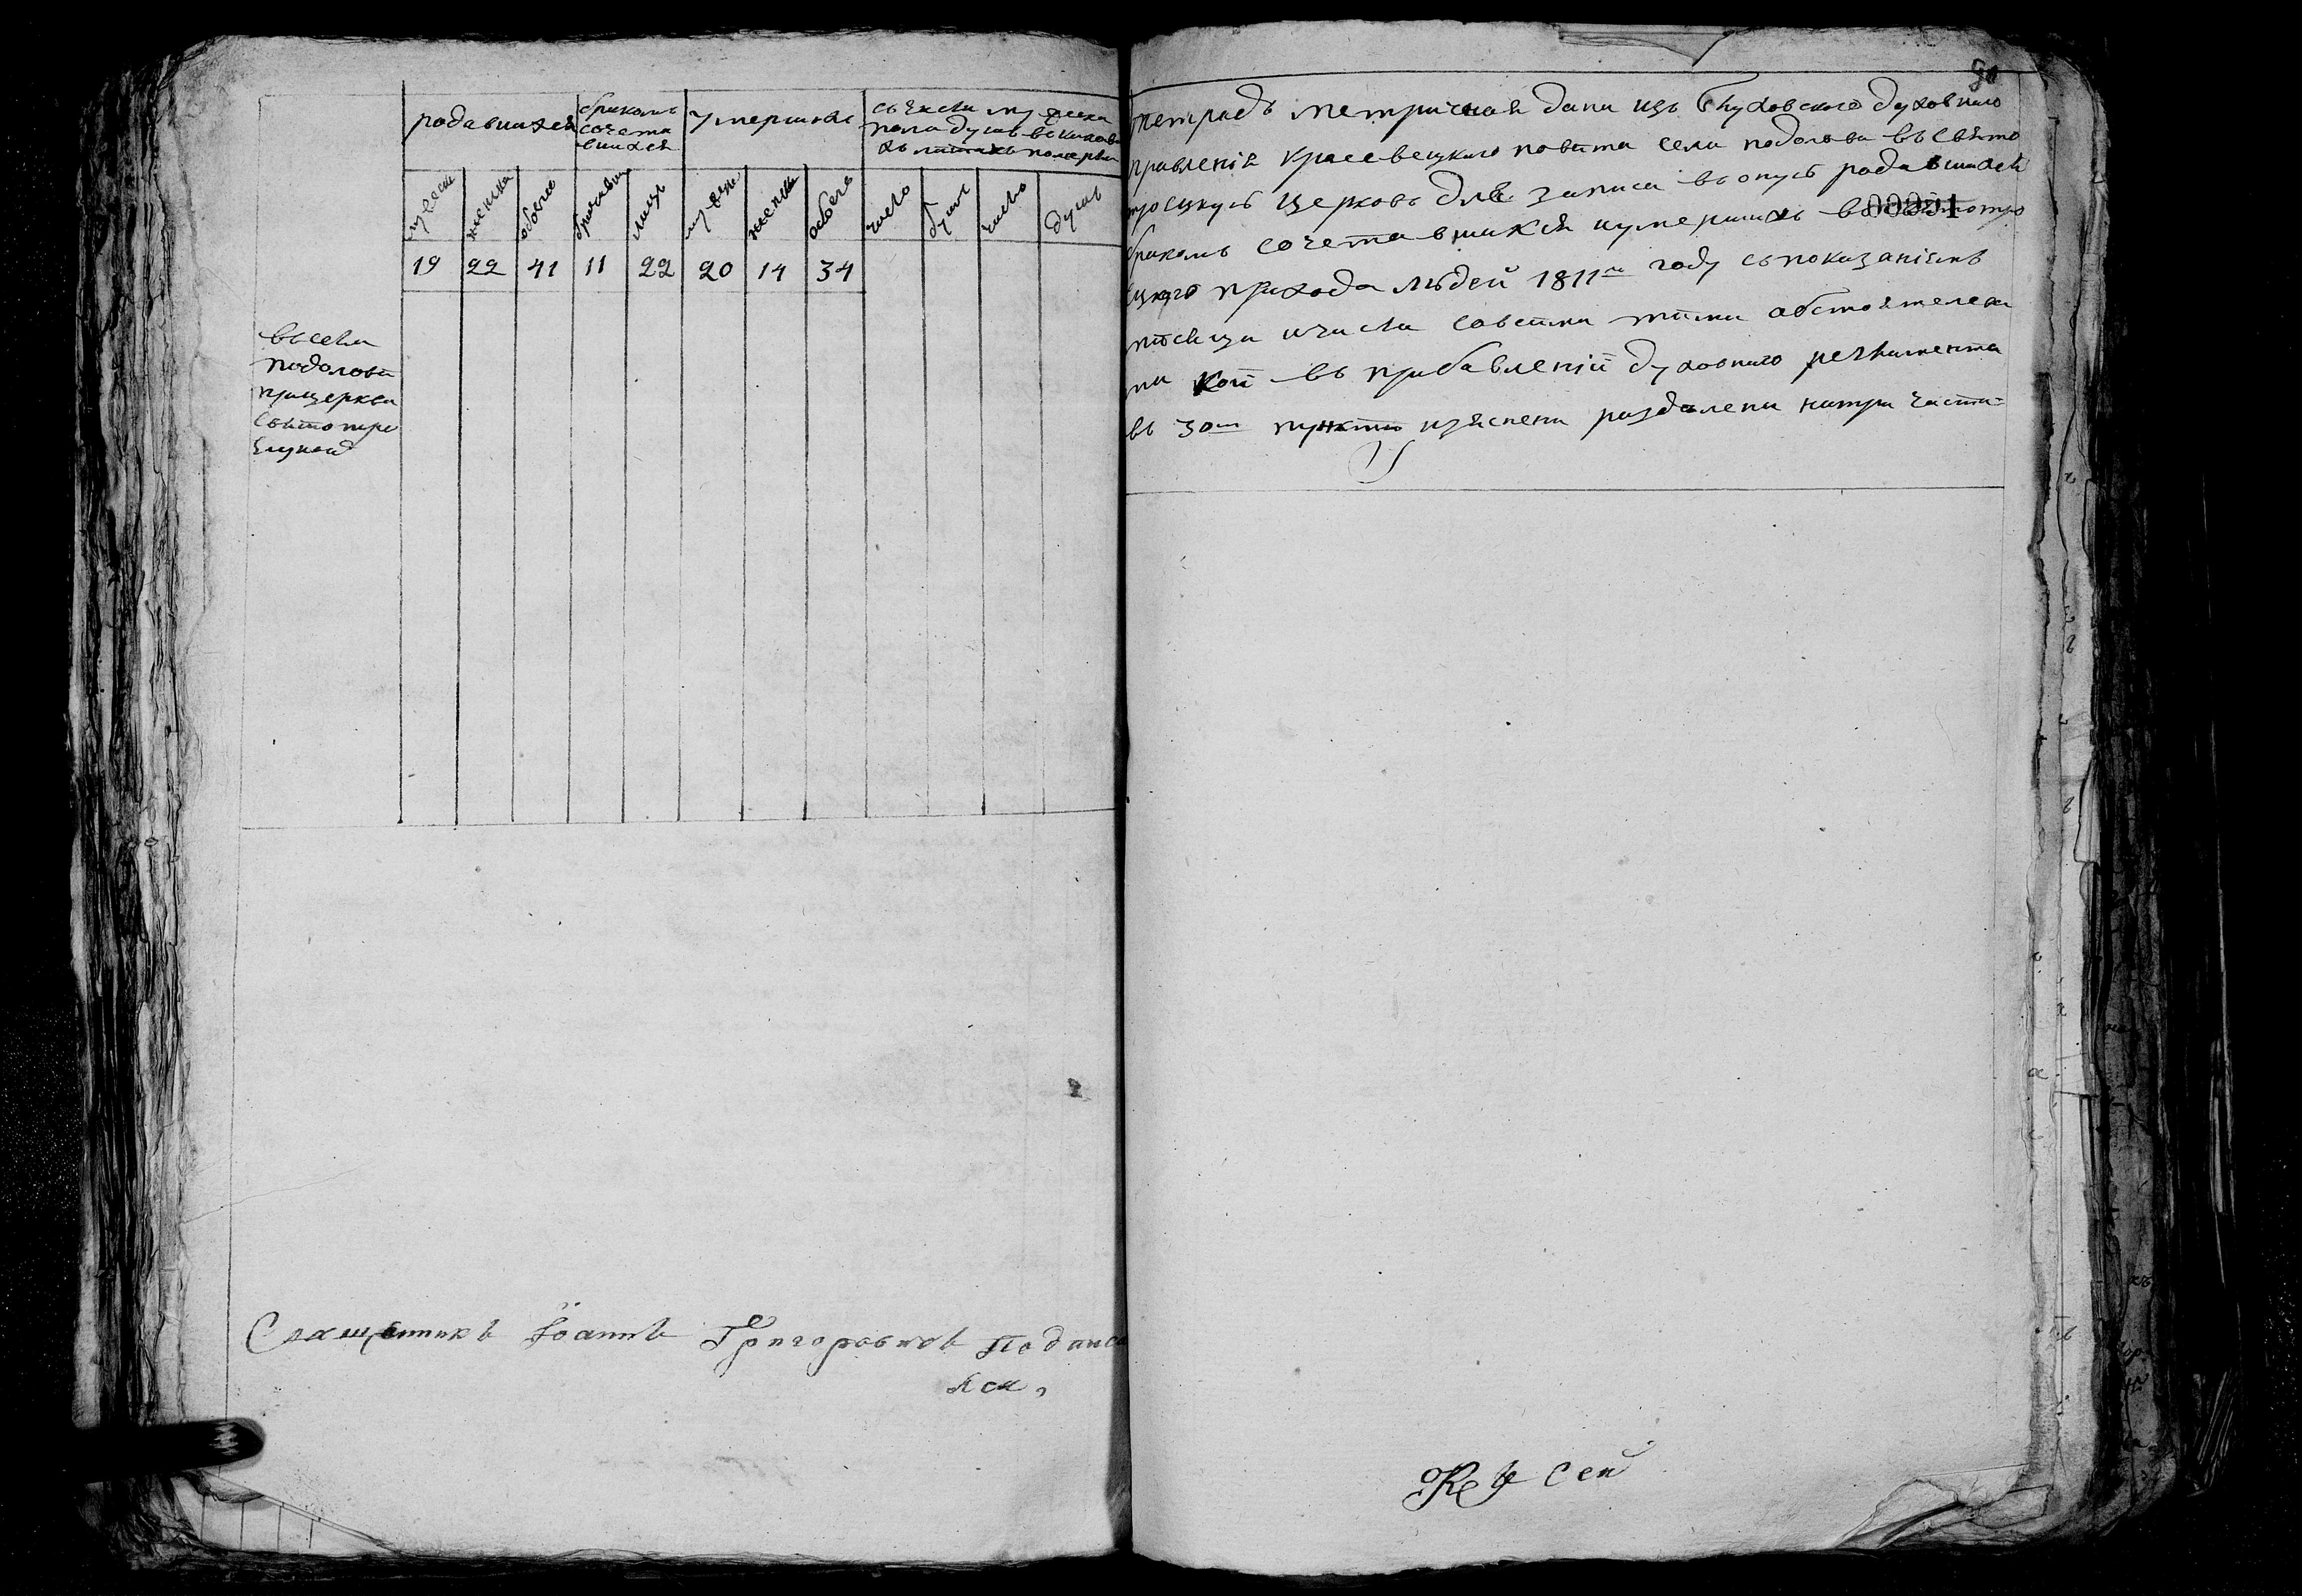 родавшихся
бракомъ
сочета
вшихся
умершихъ
съ числа мужеска
пола душъ
мужеска
женска
обоего
браковъ
лицъ
мужеска
женска
обоего
число
душъ
число
душъ
19 22 41 11 22 20 14 34
въ селе
подолове
при церкви
святотро
ецкой
Священникъ Іоаннъ Григоровичъ подписа
лся
90
тетрадь метричная дана изъ Глуховского духовного
правленія Кролевецкаго повета села подолова въ свято
троецкую церковь для записи въ оную родавшихся
00091
бракомъ сочетавшихся и умершихъ въ святотро
ецкаго прихода людей 1811го году съ показаніемъ
месяца и числа со всеми теми обстоятелства
ми кои въ прибавленіи духовного регламента
въ 30м пункте изяснени разделена на три части